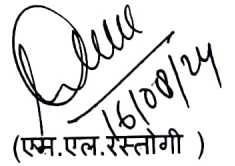 16/08/24
(एम.एल.रस्तोगी )